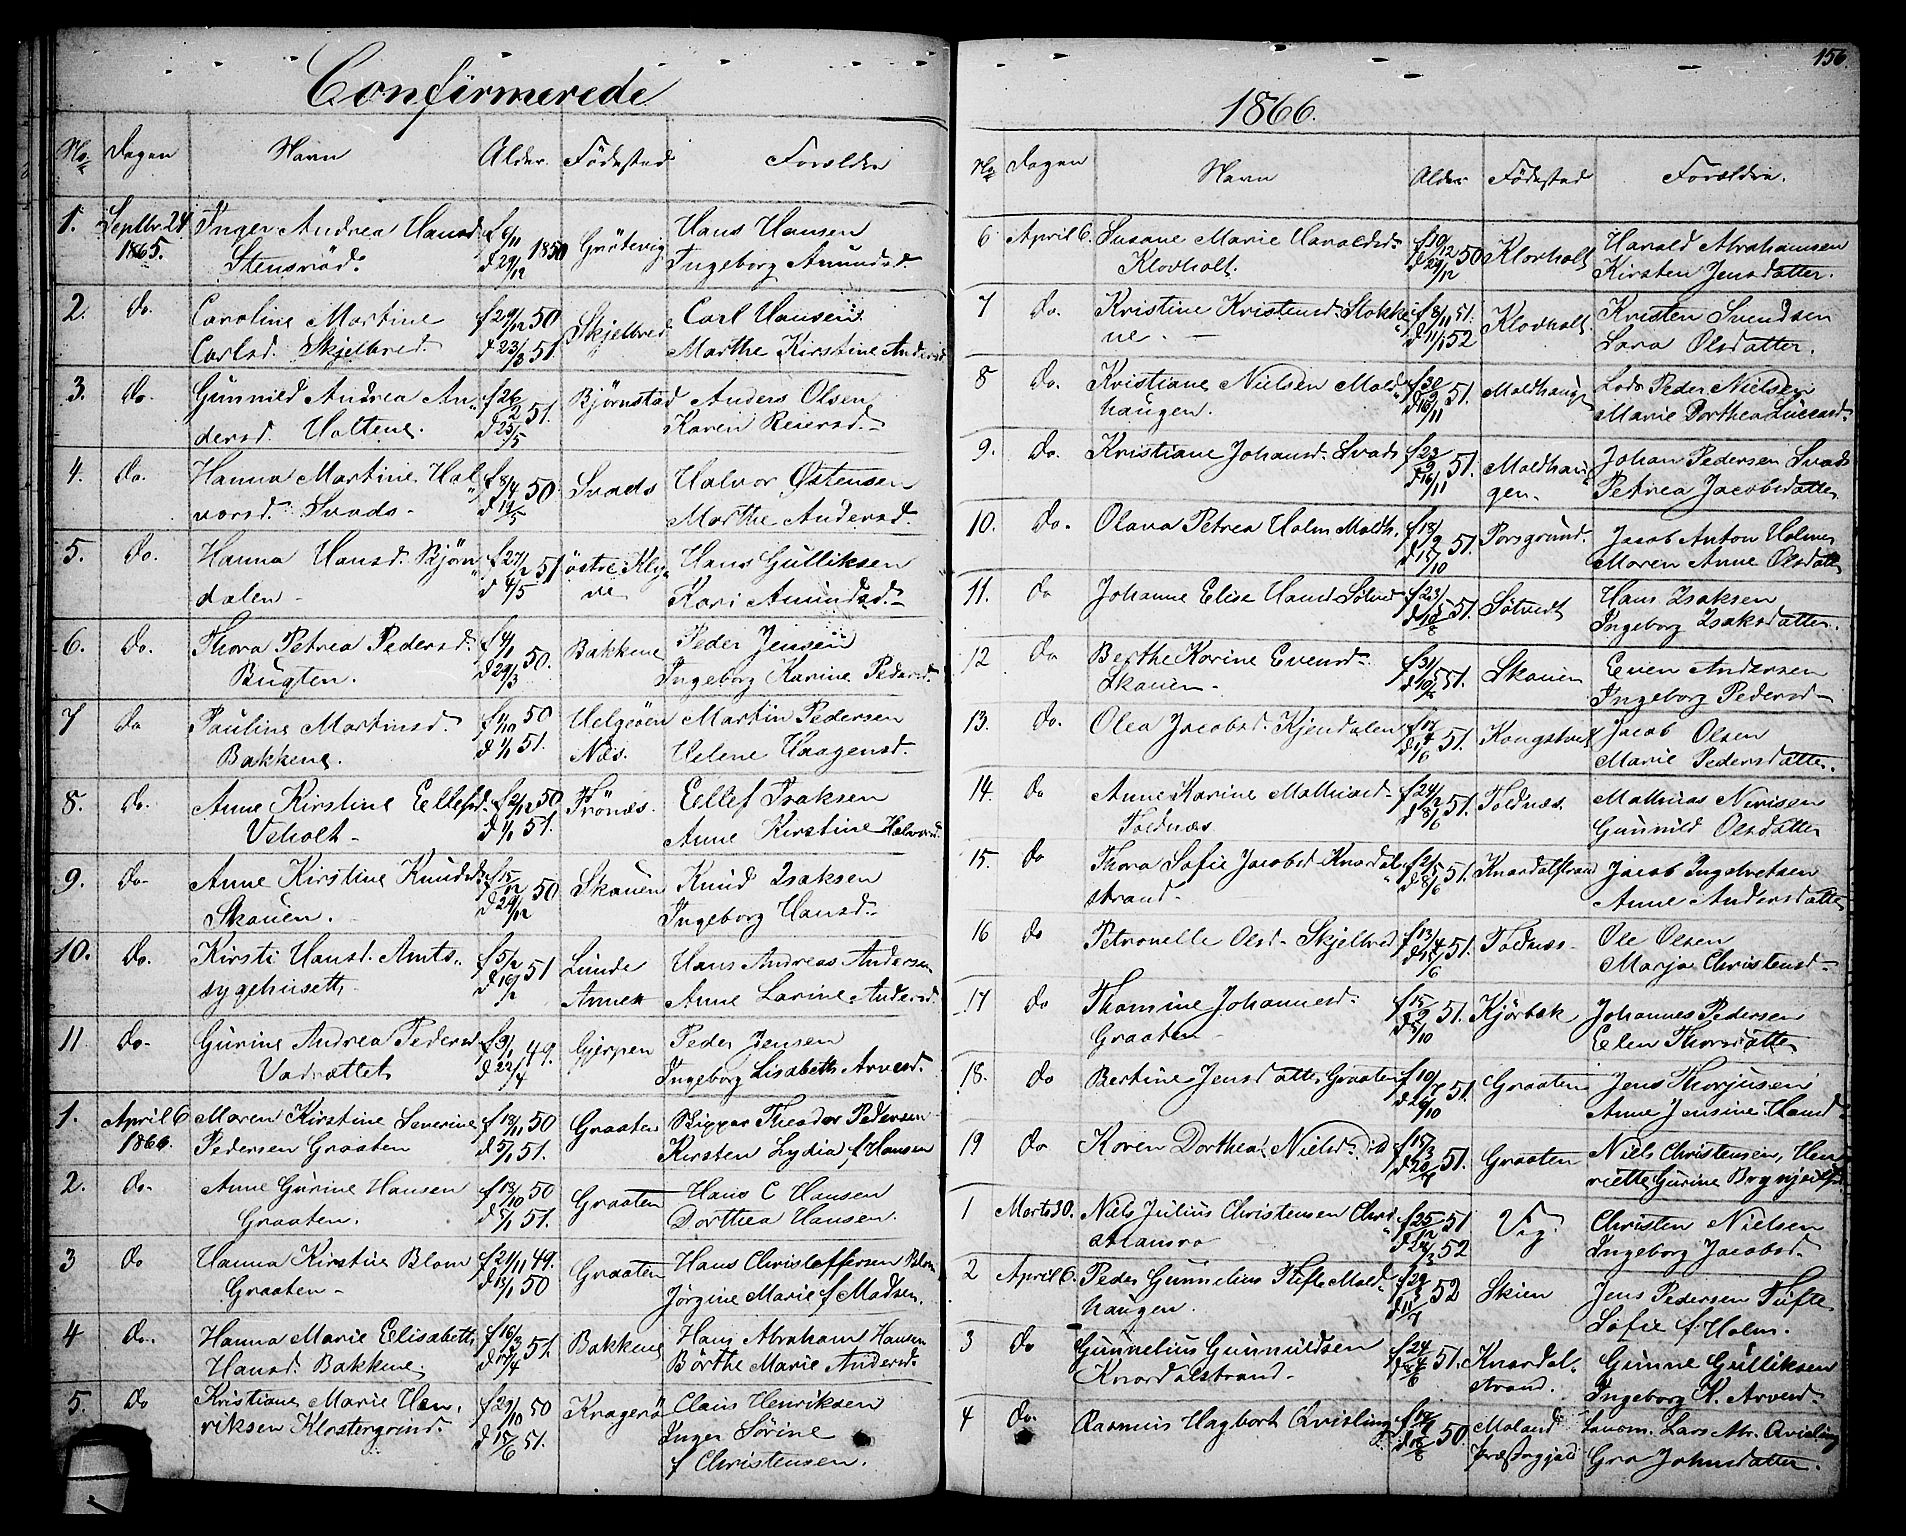 Confirmerede
No Dagen Navn Alder. Födested Forældre
1. Septbr. 24 1865. Inger Andrea Hansd. f 6/11 1850 Grötevig Hans Hansen
Stensröd. d 29/12 Ingeborg Amundsd.
2. do. Caroline Martine f 29/12 50 Skjelbred Carl Hansen
Carlsd. Skjelbred. d 23/3 51. Marthe Kirstine Andersd
3. do. Gunnild Andrea An- f 26/2 51. Bjørnstad Anders Olsen
dersd. Holtene. d 25/5 Karen Reiersd.
4. do. Hanna Martine Hal- f 8/4 50. Svads Halvor Østensen
vorsd. Svads. d 19/5 Marthe Andersd.
5. do. Hanna Hansd. Bjørn- f 27/2 51 östre Kly- Hans Gulliksen
dalen d 4/5 ve Kari Amundsd.
6. do. Thora Petrea Pedersd. f 4/1 50. Bakkene Peder Jensen
Bugten. d 29/3 Ingeborg Karine Pedersd.
7 do Pauline Martinsd. f 1/10 50 Helgeöen Martin Pedersen
Bakkene. d 1/1 51. Næs. Helene Haagensd.
8. do. Anne Kirstine Ellefsd. f 2/12 50 Trönæs. Ellef Isaksen
Veholt d 1/1 51. Anne Kirstine Halvorsd.
9. do. Anne Kirstine Knudsd. f 15/12 50 Skauen Knud Isaksen
Skauen. d 29/12 Ingeborg Hansd.
10. do. Kirsti Hansd. Amts- f 5/2 51 Lunde Hans Andreas Andersen
sygehusett. d 16/2 Annex Anne Larine Andersd.
11 do. Gurine Andrea Pedersd f 31/1 49. Gjerpen Peder Jensen
Vadrættet d 22/4 Ingeborg Lisabeth Arvesd.
1. April 6 1866. Maren Kirstine Severine f 18/11 50 Graaten Skipper Theodor Pedersen
Pedersen Graaten d 5/1 51. Kirsten Lydia f Hansen
2. do. Anne Gurine Hansen f 13/10 50 Graaten Hans C Hansen
Graaten. d 5/1 51. Dorthea Hansen.
3 do Hanna Kirstine Blom f 21/11 49. Graaten Hans Christoffersen Blom
Graaten d 13/1 50 Jørgine Marie f Madsen.
4 do. Hanna Marie Elisabeth f 16/3 51. Bakkene Hans Abraham Hansen
Hansd. Bakkene. Börthe Marie Andersd.
5. do Kristiane Marie Hen- f 29/10 50 Kragerö Claus Henriksen
riksen Klostergrind. d 15/6 51. Inger Sörine
f Christensen.
156.
1866.
No Dagen Navn Alder Födested Forældre.
6 April 6. Susane Marie Haraldsd. f 10/12 50 Klovholt Harald Abrahamsen
Klovholt. d 29/12 Kirsten Jensdatter.
7 do. Kristine Kristensd. Stokke- f 8/11 51. Klovholt. Kristen Svendsen
ne. d 11/1 52 Sara Olsdatter.
8 do. Kristiane Nielsen Mold- 51. Moldhaugen Lods Peder Nielsen
haugen. Marie Dorthea
9. do. Kristiane Johansd. Svads f 23/9 51. Moldhau- Johan Pedersen Svads
d 16/11 gen. Petrea Jacobsdatter
10. do. Olava Petrea Holm Moldh. f 18/9 51. Porsgrund. Jacob Anton Holm
d 15/10 Maren Anne Olsdatter
11. do Johanne Elise Hansd Sölvedt f 23/5 51. Sölvedt Hans Isaksen
Ingeborg Isaksdatter.
12 do Berthe Karine Evensd. f 31/5 51. Skauen Even Andersen
Skauen Ingeborg Pedersd
13. do. Olea Jacobsd. Kjendalen 51. Kongstvet Jacob Olsen
Marie Pedersdatter.
14. do Anne Karine Mathiasd. f 24/2 51. Toldnæs. Mathias
Toldnæs d 8/6 Gunnild Olsdatter
15. do Thora Sofie Jacobsd Knardal- 51. Knardalstrand Jacob Ingebretsen
strand. Anne Andersdatter
16 do Petronelle Olsd. Skjelbred f 13/4 51. Toldnæs. Ole Olsen
d 15/6 Marja Christensd.
17 do Thomine Johannesd. f 15/2 51. Kjörbæk Johannes Pedersen
Graaten Elen Thorsdatter
18. do Bertine Jensdatter Graaten f 10/7 51. Graaten Jens Thorjusen
d 26/10 Anne Jensine Hansd
19 do Karen Dorthea Nielsd. f 15/3 51. Graaten Niels Christensen, Hen-
riette Gurine
1 Marts 30. Niels Julius Christensen f 25/12 51 Vig Christen Nielsen
d 28/3 52 Ingeborg Jacobsd.
2 April 6. Peder Gunnelius Tufte Mold- 52 Skien Jens Pedersen Tufte
haugen. Sofie f Holm.
3 do Gunnelius Gunnuldsen f 24/4 51. Knardal- Gunne Gulliksen
Knardalstrand. strand. Ingeborg K. Arvesd.
4 do. Rasmus Hagbart Qvisling 50 Moland Lars Abr. Qvisling
Præstegjæld Gro Johnsdatter.